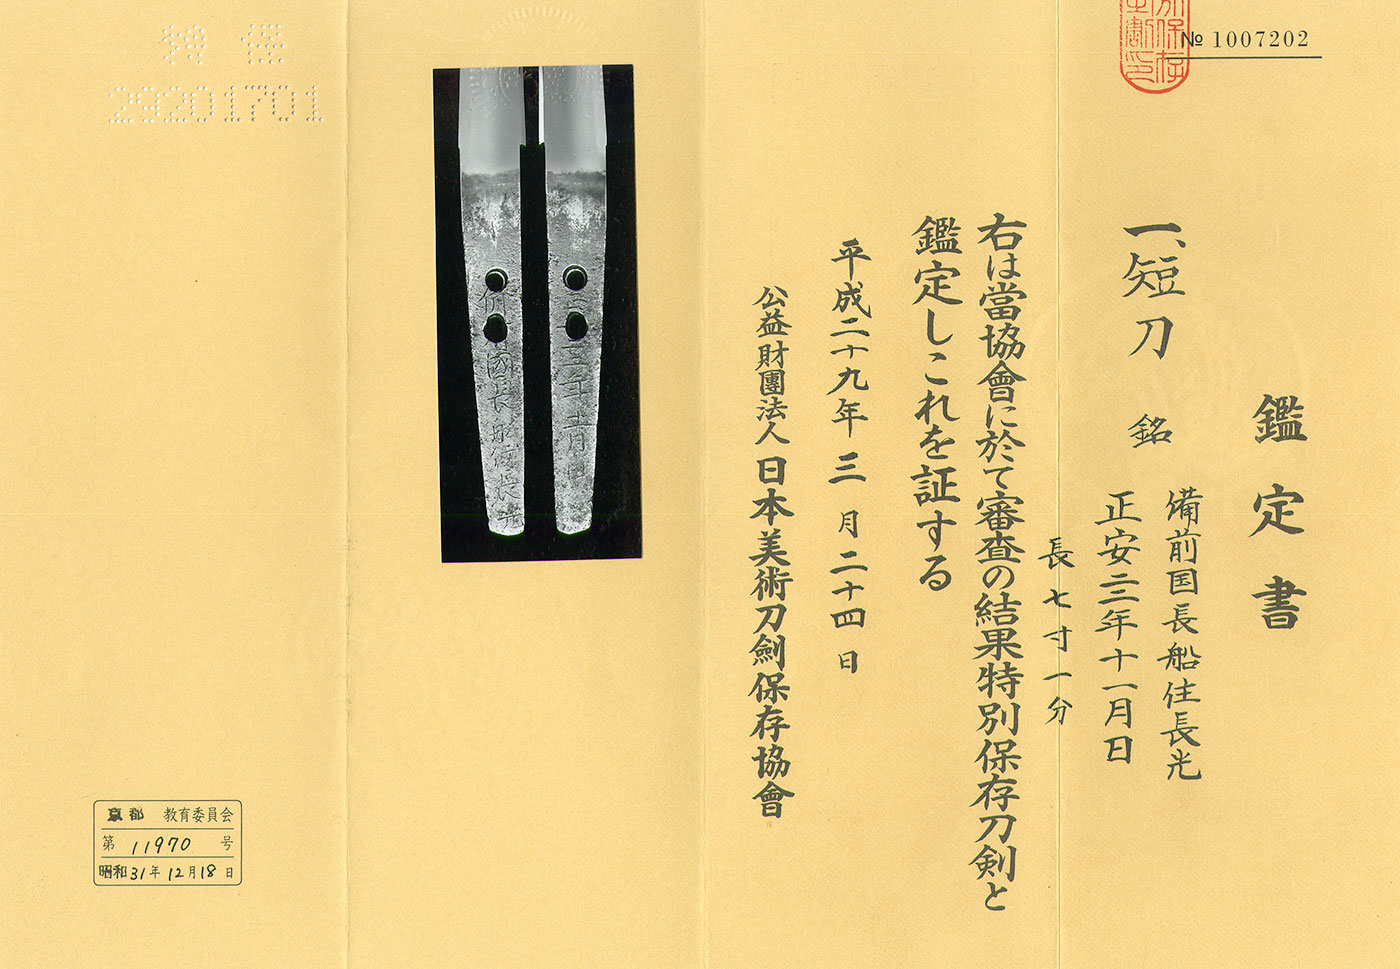 № 1007202
鑑定書
一、短刀 銘
備前国長船住長光
正安二二年十一月日
長七寸一分
右は當協會に於て審査の結果特別保存刀剣と
鑑定しこれを証する
平成二十九年三月二十四日
公益財團法人日本美術刀劍保存協會
特保
29201701
京都 教育委員会
第 11970 号
昭和31年12月18日